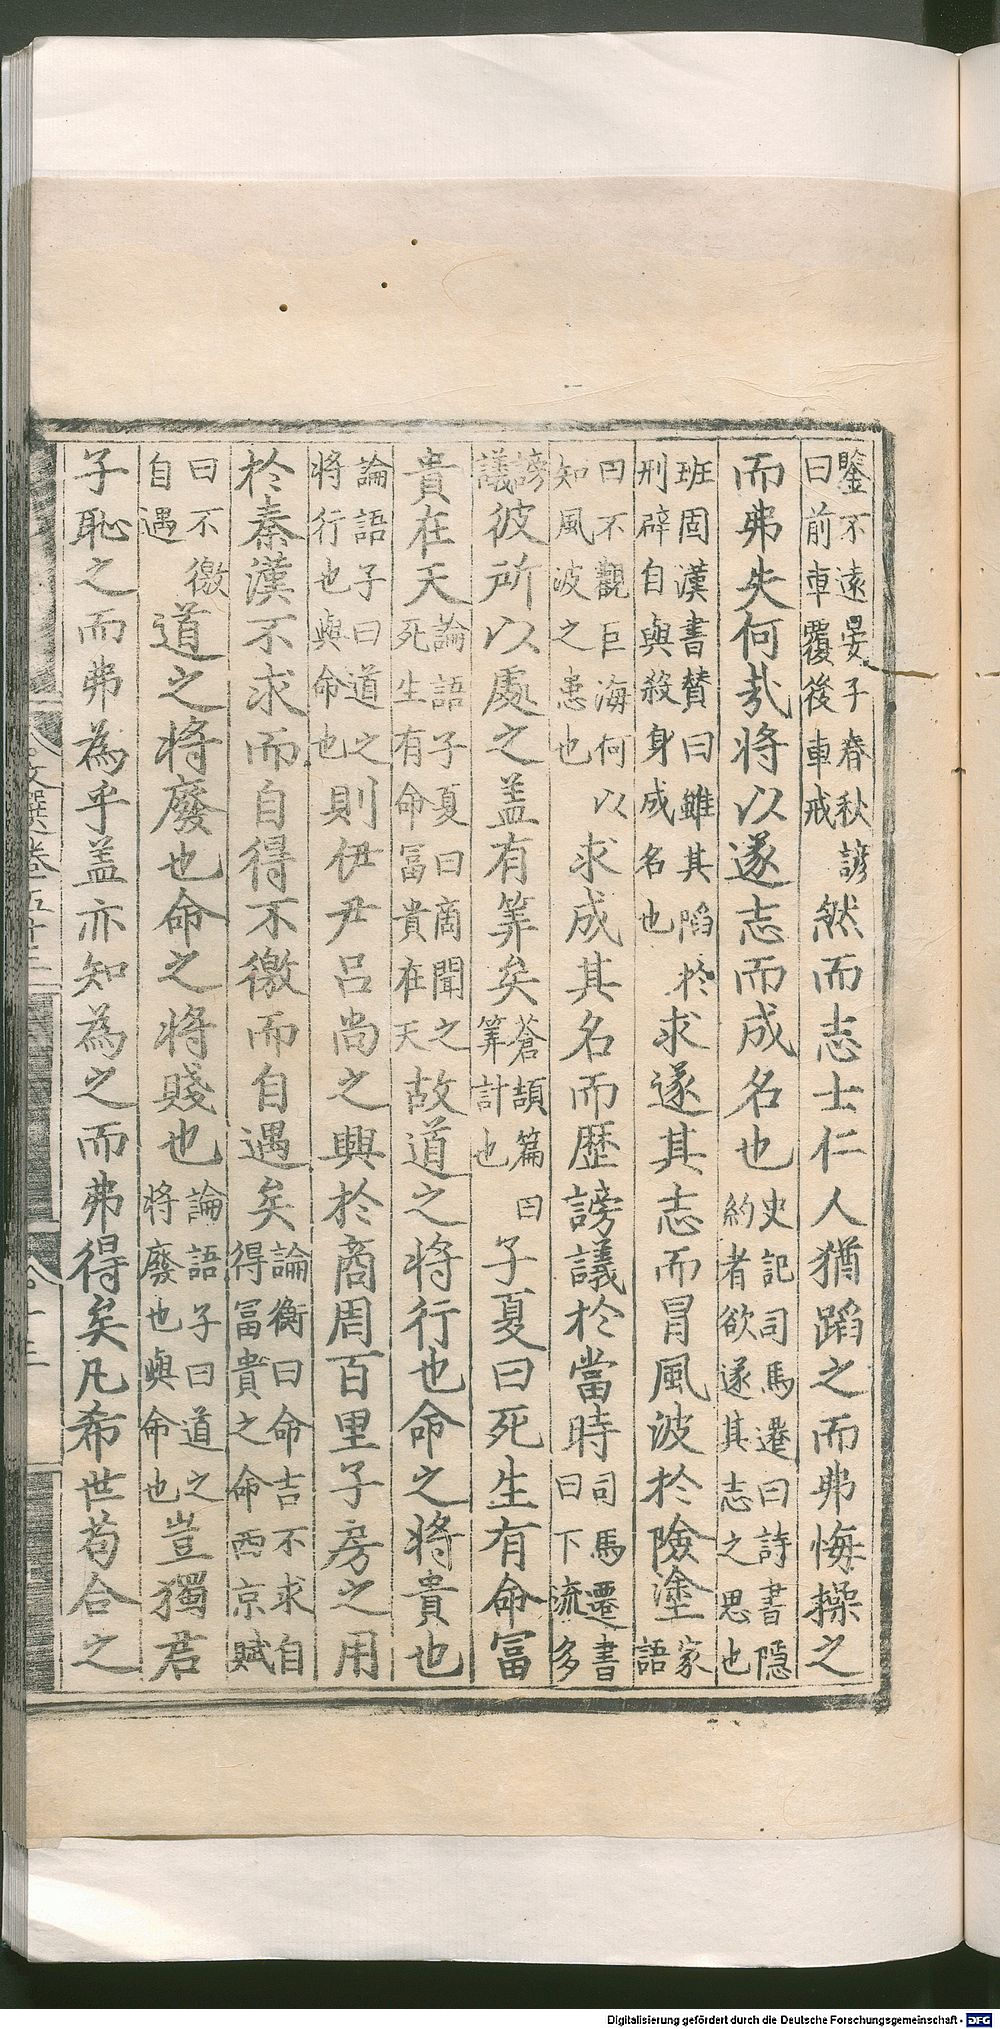 鑒不遠晏子春秋諺曰前車覆後車戒然而志士仁人猶蹈之而弗悔操之
而弗失何哉將以遂志而成名也史記司馬遷曰詩書隱約者欲遂其志之思也
班固漢書贊曰雖其陷於刑辟自與殺身成名也求遂其志而冒風波於險塗家語
曰不觀巨海何以知風波之患也求成其名而歷謗議於當時司馬遷書曰下流多
謗議彼所以處之盖有筭矣蒼頡篇曰筭計也子夏曰死生有命冨
貴在天論語子夏曰商聞之死生有命冨貴在天故道之將行也命之將貴也
論語子曰道之將行也與命也則伊尹呂尚之興於商周百里子房之用
於秦漢不求而自得不徼而自遇矣論衡曰命吉不求自得冨貴之命西京賦
曰不徼自遇道之將廢也命之將賤也論語子曰道之將廢也與命也豈獨君
子恥之而弗為乎盖亦知為之而弗得矣凡希世苟合之
文選卷五十三
十三
Digitalisierung gefördert durch die Deutsche Forschungsgemeinschaft - DFG